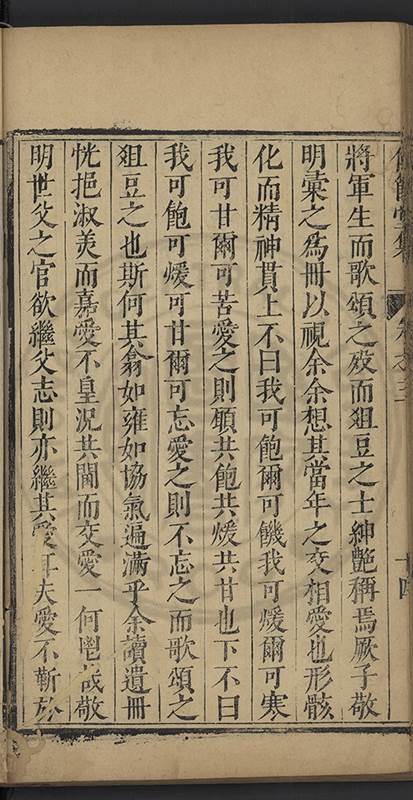 將軍生而歌頌之歿而爼豆之士紳艶稱焉厥子敬
明彚之爲冊以視余余想其當年之交相愛也形骸
化而精神貫上不曰我可飽爾可饑我可煖爾可寒
我可甘爾可苦愛之則願共飽共煖共甘也下不曰
我可飽可煖可甘爾可忘愛之則不忘之而歌頌之
爼豆之也斯何其翕如雍如協氣遍滿乎余讀遺冊
恍挹淑羙而嘉愛不皇況其閒而交愛一何鬯哉敬
明世父之官欲繼父志則亦繼其愛耳夫愛不靳於